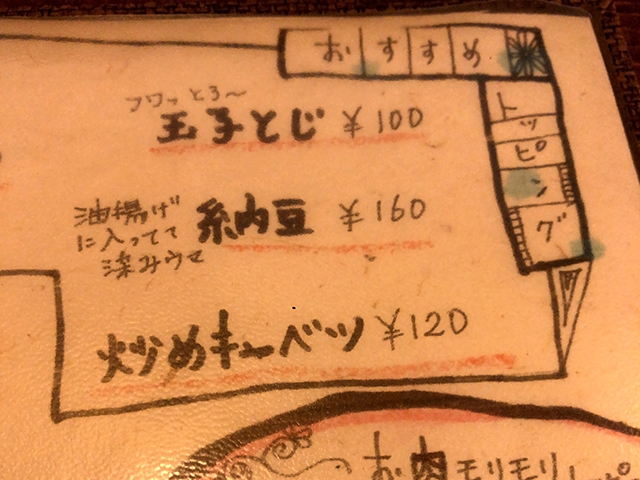 おすすめ
トッピング
フワッとろ〜
玉子とじ ¥100
油揚げ
に入ってて
深みウマ
納豆 ¥160
炒めキャベツ ¥120
お肉モリモリ